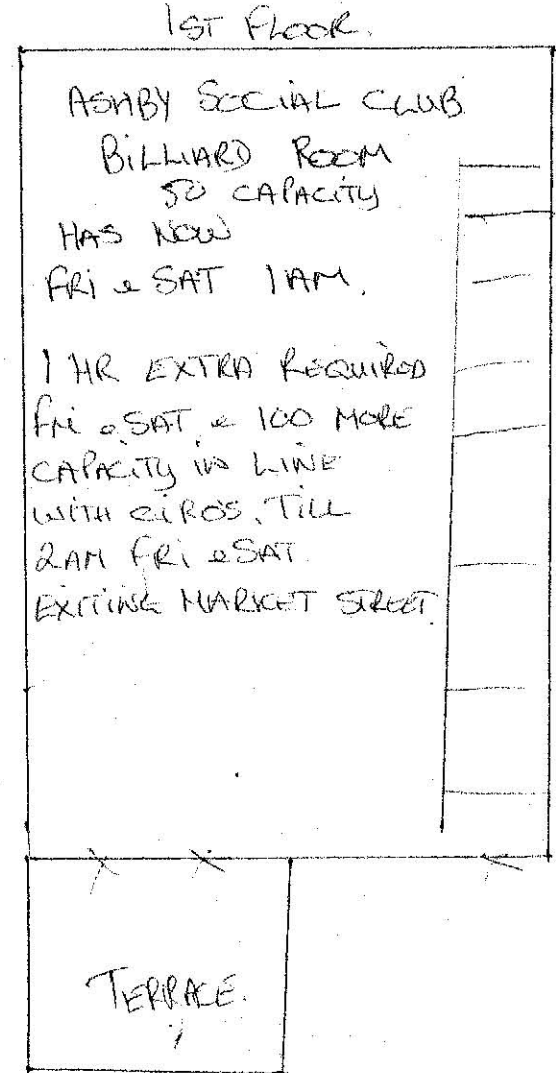 1ST FLOOR.
ASHBY SOCIAL CLUB
BILLIARD ROOM
50 CAPACITY
HAS NOW
FRI & SAT 1AM.
1 HR EXTRA REQUIRED
FRI & SAT & 100 MORE
CAPACITY IN LINE
WITH CIROS, TILL
2AM FRI & SAT
EXITING MARKET STREET
TERRACE.